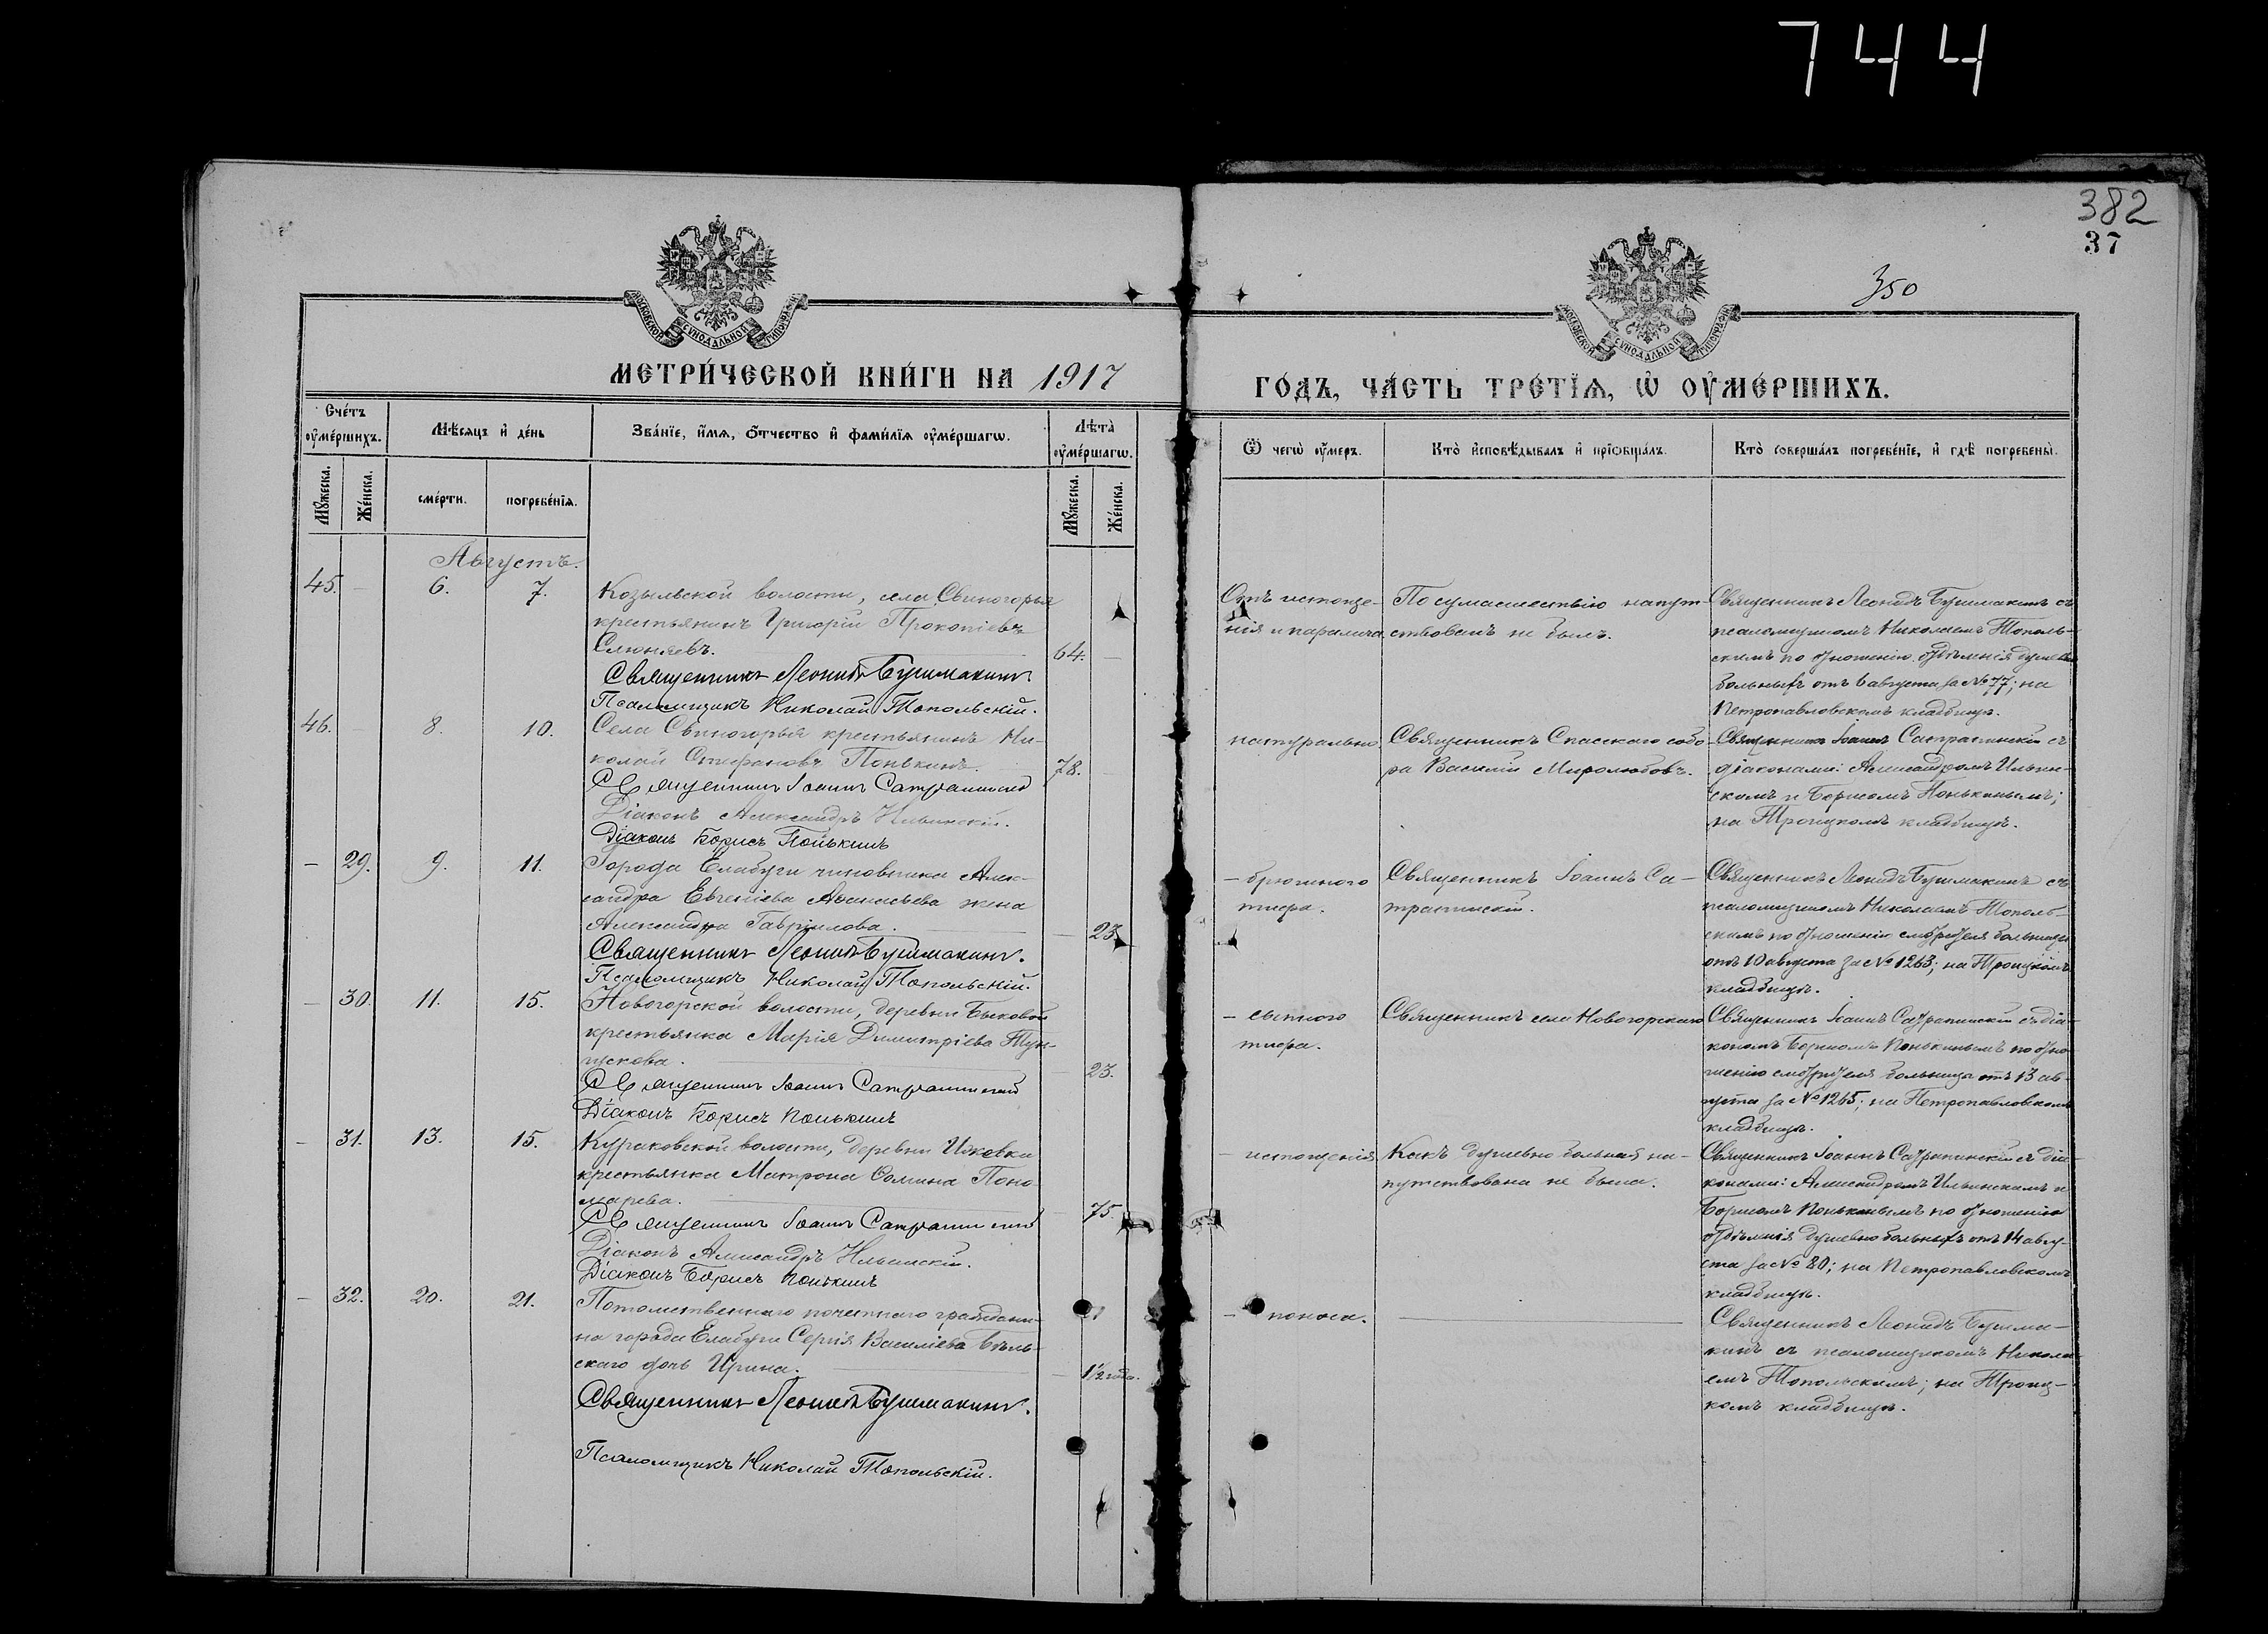 744
382
37
350
МОСКОВСКОЙ СУНОДАЛЬНОЙ ТИПОГРАФІИ
МОСКОВСКОЙ СУНОДАЛЬНОЙ ТИПОГРАФІИ
МЕТРИ́ЧЕСКОЙ КНИ́ГИ НА 1917
ГО́ДЪ, ЧА́СТЬ ТРЕ́ТІѦ, Ѡ ОУ҆МЕ́РШИХЪ.
Сче́тъ оу҆ме́ршихъ.
Мѣ́сяцъ и҆ де́нь
Зва́нїе, и҆́мѧ, ѻ҆́тчество и҆ фами́лїѧ оу҆ме́ршагѡ.
Лѣ́та оу҆ме́ршагѡ.
Ѿ чегѡ̀ оу҆́меръ.
Кто̀ и҆сповѣ́дывалъ и҆ прїѡбща́лъ.
Кто̀ соверша́лъ погребе́нїе, и҆ гдѣ̀ погребены̀.
Мꙋ́жеска.
Же́нска.
сме́рти.
погребе́нїѧ.
Мꙋ́жеска.
Же́нска.
Августъ.
45. – 6. 7.
Козыльской волости, села Свиногорья
крестьянинъ Григорій Прокопіевъ
Слюняевъ. 64. –
Священникъ Леонидъ Бушмакинъ.
Псаломщикъ Николай Топольскій.
Отъ истоще-
нія и паралича
По сумасшествію напут-
ствованъ не былъ.
Священникъ Леонидъ Бушмакинъ съ
псаломщикомъ Николаемъ Тополь-
скимъ по отношенію отдѣленія душевно
больныхъ отъ 6 августа за № 77; на
Петропавловскомъ кладбищѣ.
46. – 8. 10.
Села Свиногорья крестьянинъ Ни-
колай Стефановъ Понькинъ. 78.
Священникъ Іоаннъ Сатрапинскій
Діаконъ Александръ Ильинскій.
Діаконъ Борисъ Понькинъ
натурально
Священникъ Спасскаго собо-
ра Василій Миролюбовъ.
Священникъ Іоаннъ Сатрапинскій съ
діаконами: Александромъ Ильин-
скимъ и Борисомъ Понькинымъ;
на Троицкомъ кладбищѣ.
– 29. 9. 11.
Города Елабуги чиновника Алек-
сандра Евгеніева Аѳанасьева жена
Александра Гавріилова. – 23.
Священникъ Леонидъ Бушмакинъ.
Псаломщикъ Николай Топольскій.
– брюшного
тифа.
Священникъ Іоаннъ Са-
трапинскій.
Священникъ Леонидъ Бушмакинъ съ
псаломщикомъ Николаемъ Тополь-
скимъ по отношенію смотрителя больницы
отъ 10 августа за № 1263; на Троицкомъ
кладбищѣ.
– 30. 11. 15.
Новогорской волости, деревни Быковой
крестьянка Марія Димитріева
– 23.
Священникъ Іоаннъ Сатрапинскій
Діаконъ Борисъ Понькинъ
– сыпного
тифа.
Священникъ села Новогорскаго
Священникъ Іоаннъ Сатрапинскій съ діа-
кономъ Борисомъ Понькинымъ по отно-
шенію смотрителя больницы отъ 13 ав-
густа за № 1265; на Петропавловскомъ
кладбищѣ.
– 31. 13. 15.
Кураковской волости, деревни Ижовки
крестьянка Матрона Ѳомина Поно-
марева. – 75
Священникъ Іоаннъ Сатрапинскій
Діаконъ Александръ Ильинскій.
Діаконъ Борисъ Понькинъ
– истощенія
Какъ душевно больная, на-
путствована не была.
Священникъ Іоаннъ Сатрапинскій съ діа-
конами: Александромъ Ильинскимъ и
Борисомъ Понькинымъ по отношенію
отдѣленія душевно больныхъ отъ 14 авгу-
ста за № 80; на Петропавловскомъ
кладбищѣ.
– 32. 20. 21.
Потомственнаго почетнаго граждани-
на города Елабуги Сергія Василіева Бѣль-
скаго дочь Ирина. – 1½ года.
Священникъ Леонидъ Бушмакинъ.
Псаломщикъ Николай Топольскій.
– поноса.
Священникъ Леонидъ Бушма-
кинъ съ псаломщикомъ Никола-
емъ Топольскимъ; на Троиц-
комъ кладбищѣ.